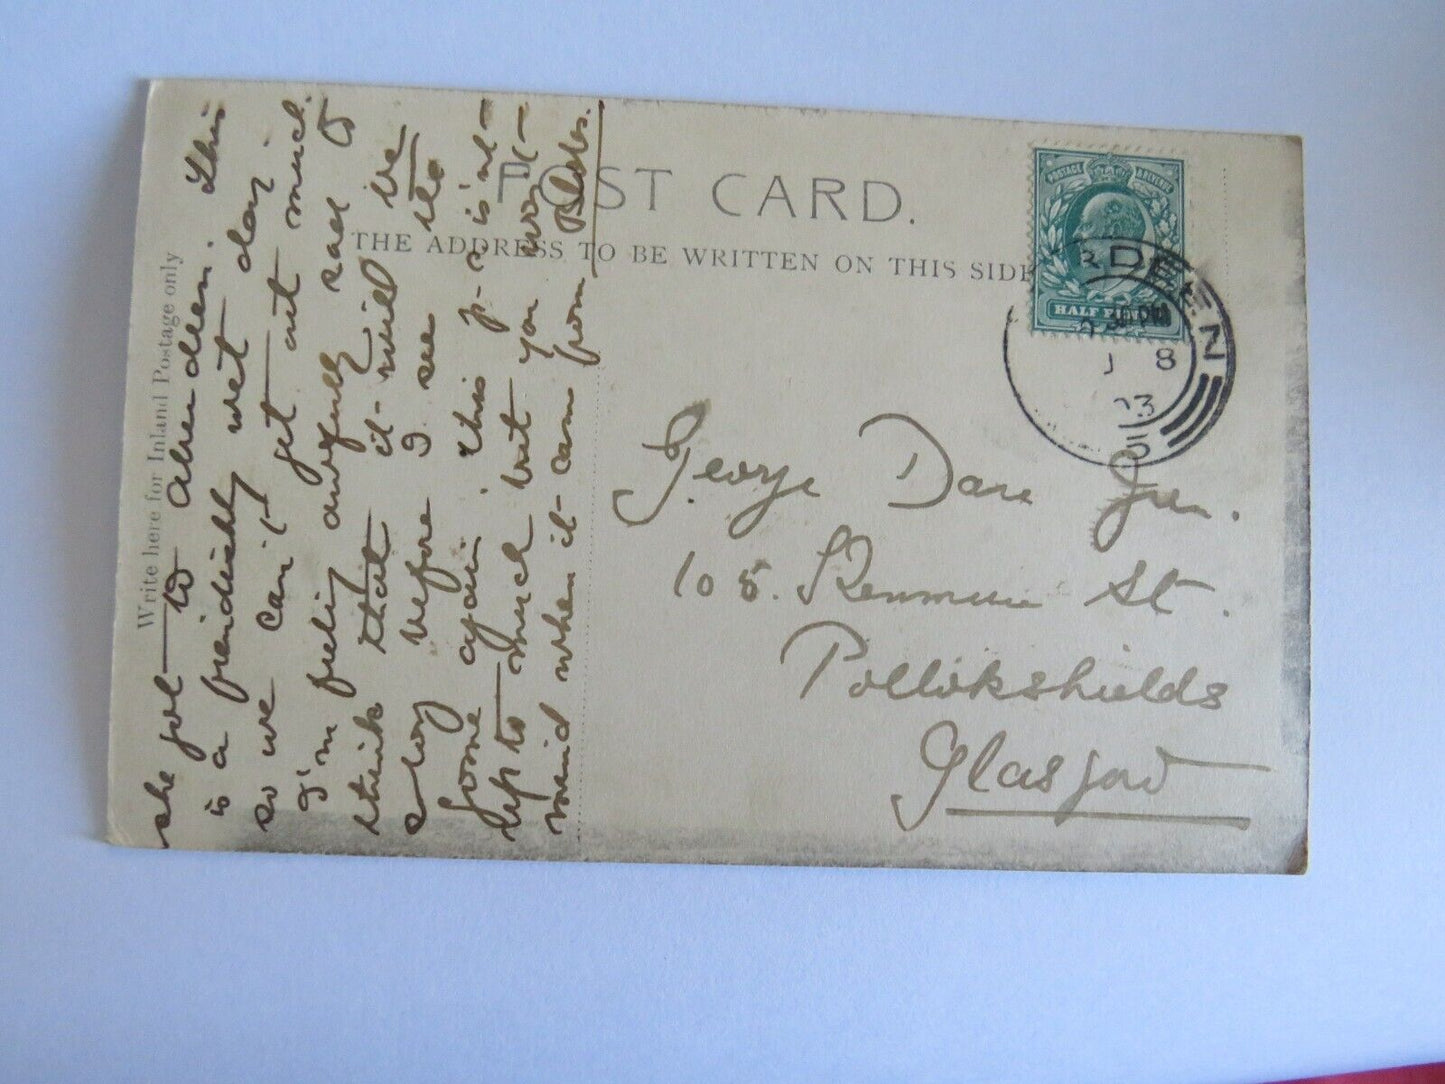 POST CARD.
THE ADDRESS TO BE WRITTEN ON THIS SIDE
Write here for Inland Postage only
HALF PENNY
POSTAGE REVENUE
ABERDEEN
8
03
5
We got to Aberdeen. This
is a fiendishly wet day
so we can't get out much.
I'm feeling awfully sad to
think that it will be
so long before I see
gone again. This p-c isn't
up to much but you won't
mind when it cam from
George Dare Jun.
105. Kenmure St.
Pollokshields
Glasgow